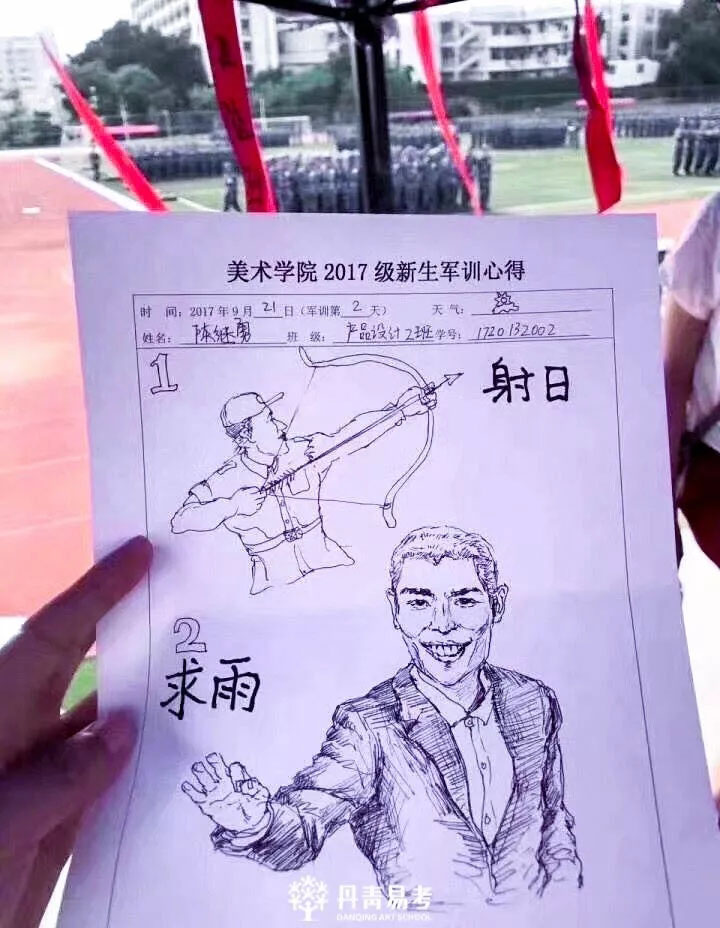 美术学院 2017 级新生军训心得
时 间：2017 年 9 月 21 日（军训第 2 天） 天 气：
姓名：陈继勇 班 级：产品设计2班 学号：1720132002
1
射日
2
求雨
丹青易考
DANQING ART SCHOOL